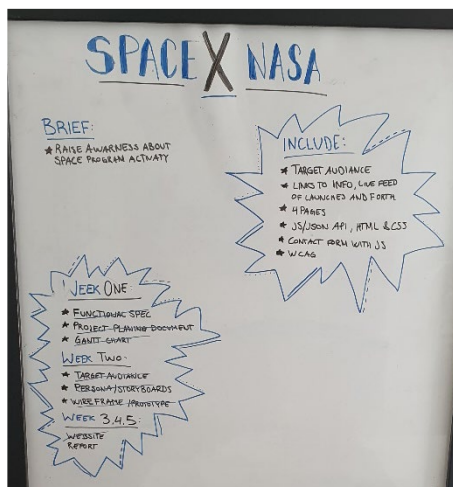 SPACE X NASA
BRIEF:
* RAISE AWARNESS ABOUT
SPACE PROGRAM ACTIVATY
INCLUDE:
* TARGET AUDIANCE
* LINKS TO INFO, LIVE FEED
OF LAUNCHES AND FORTH
* 4 PAGES
* JS/JSON API, HTML & CSS
* CONTACT FORM WITH JS
* WCAG
WEEK ONE
* FUNCTIONAL SPEC
* PROJECT PLANING DOCUMENT
* GANTT CHART
WEEK TWO:
* TARGET AUDIANCE
* PERSONA/STORYBOARDS
* WIREFRAME/PROTOTYPE
WEEK 3.4.5:
WEBSITE
REPORT